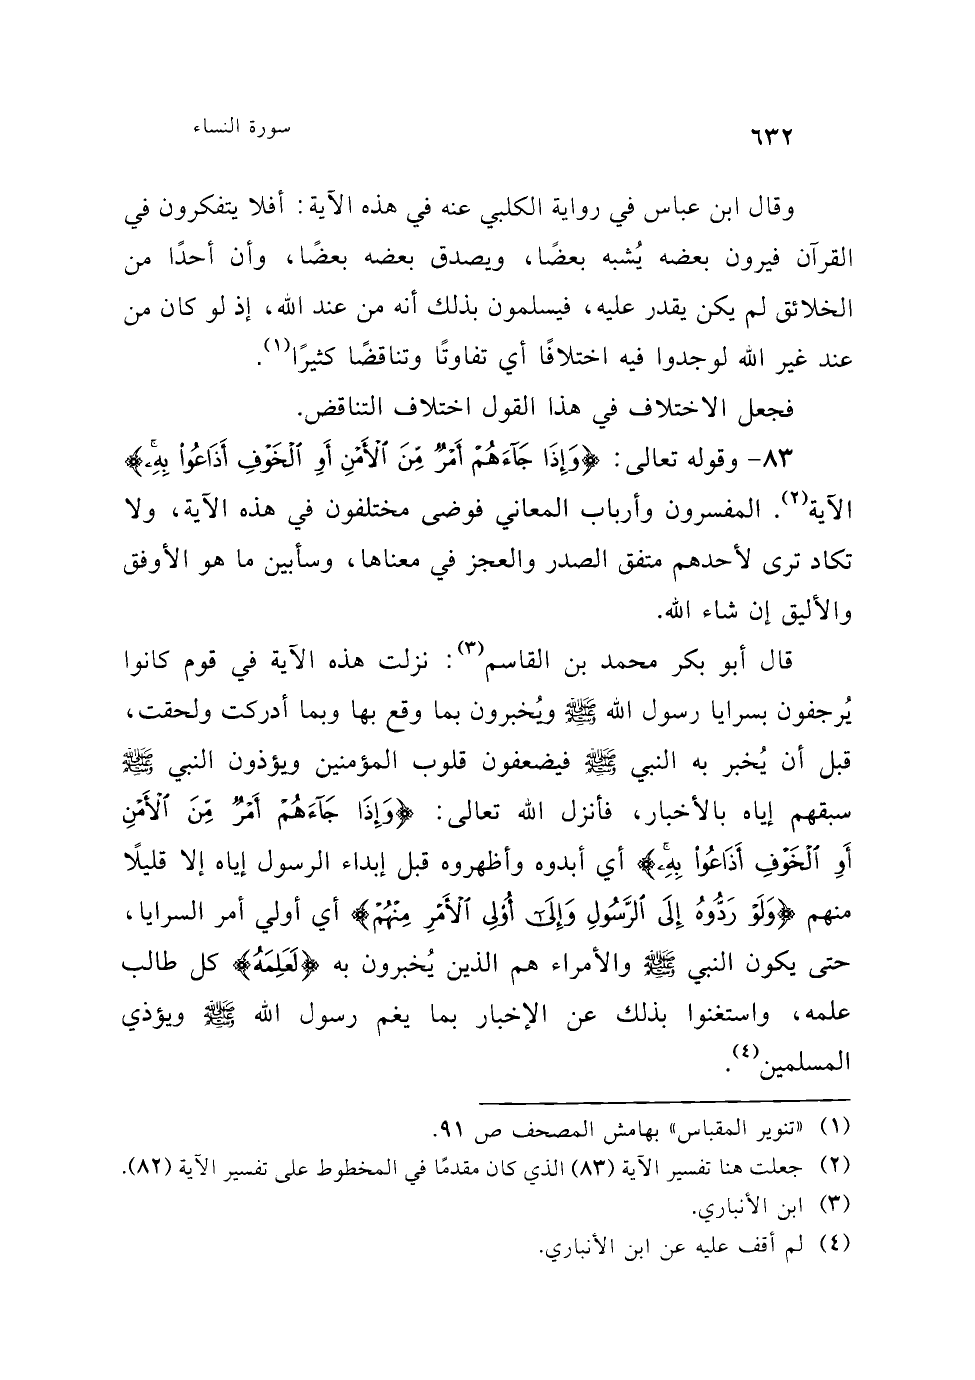 ٦٣٢
سورة النساء
وقال ابن عباس في رواية الكلبي عنه في هذه الآية: أفلا يتفكرون في
القرآن فيرون بعضه يُشبه بعضًا، ويصدق بعضه بعضًا، وأن أحدًا من
الخلائق لم يكن يقدر عليه، فيسلمون بذلك أنه من عند الله، إذ لو كان من
عند غير الله لوجدوا فيه اختلافًا أي تفاوتًا وتناقضًا كثيرًا(١).
فجعل الاختلاف في هذا القول اختلاف التناقض.
٨٣- وقوله تعالى: ﴿وَإِذَا جَآءَهُمۡ أَمۡرٞ مِّنَ ٱلۡأَمۡنِ أَوِ ٱلۡخَوۡفِ أَذَاعُواْ بِهِۦۚ﴾
الآية(٢). المفسرون وأرباب المعاني فوضى مختلفون في هذه الآية، ولا
تكاد ترى لأحدهم متفق الصدر والعجز في معناها، وسأبين ما هو الأوفق
والأليق إن شاء الله.
قال أبو بكر محمد بن القاسم(٣): نزلت هذه الآية في قوم كانوا
يُرجفون بسرايا رسول الله ﷺ ويُخبرون بما وقع بها وبما أدركت ولحقت،
قبل أن يُخبر به النبي ﷺ فيضعفون قلوب المؤمنين ويؤذون النبي ﷺ
سبقهم إياه بالأخبار، فأنزل الله تعالى: ﴿وَإِذَا جَآءَهُمۡ أَمۡرٞ مِّنَ ٱلۡأَمۡنِ
أَوِ ٱلۡخَوۡفِ أَذَاعُواْ بِهِۦۚ﴾ أي أبدوه وأظهروه قبل إبداء الرسول إياه إلا قليلًا
منهم ﴿وَلَوۡ رَدُّوهُ إِلَى ٱلرَّسُولِ وَإِلَىٰٓ أُوْلِي ٱلۡأَمۡرِ مِنۡهُمۡ﴾ أي أولي أمر السرايا،
حتى يكون النبي ﷺ والأمراء هم الذين يُخبرون به ﴿لَعَلِمَهُ﴾ كل طالب
علمه، واستغنوا بذلك عن الإخبار بما يغم رسول الله ﷺ ويؤذي
المسلمين(٤).
(١) «تنوير المقباس» بهامش المصحف ص ٩١.
(٢) جعلت هنا تفسير الآية (٨٣) الذي كان مقدمًا في المخطوط على تفسير الآية (٨٢).
(٣) ابن الأنباري.
(٤) لم أقف عليه عن ابن الأنباري.